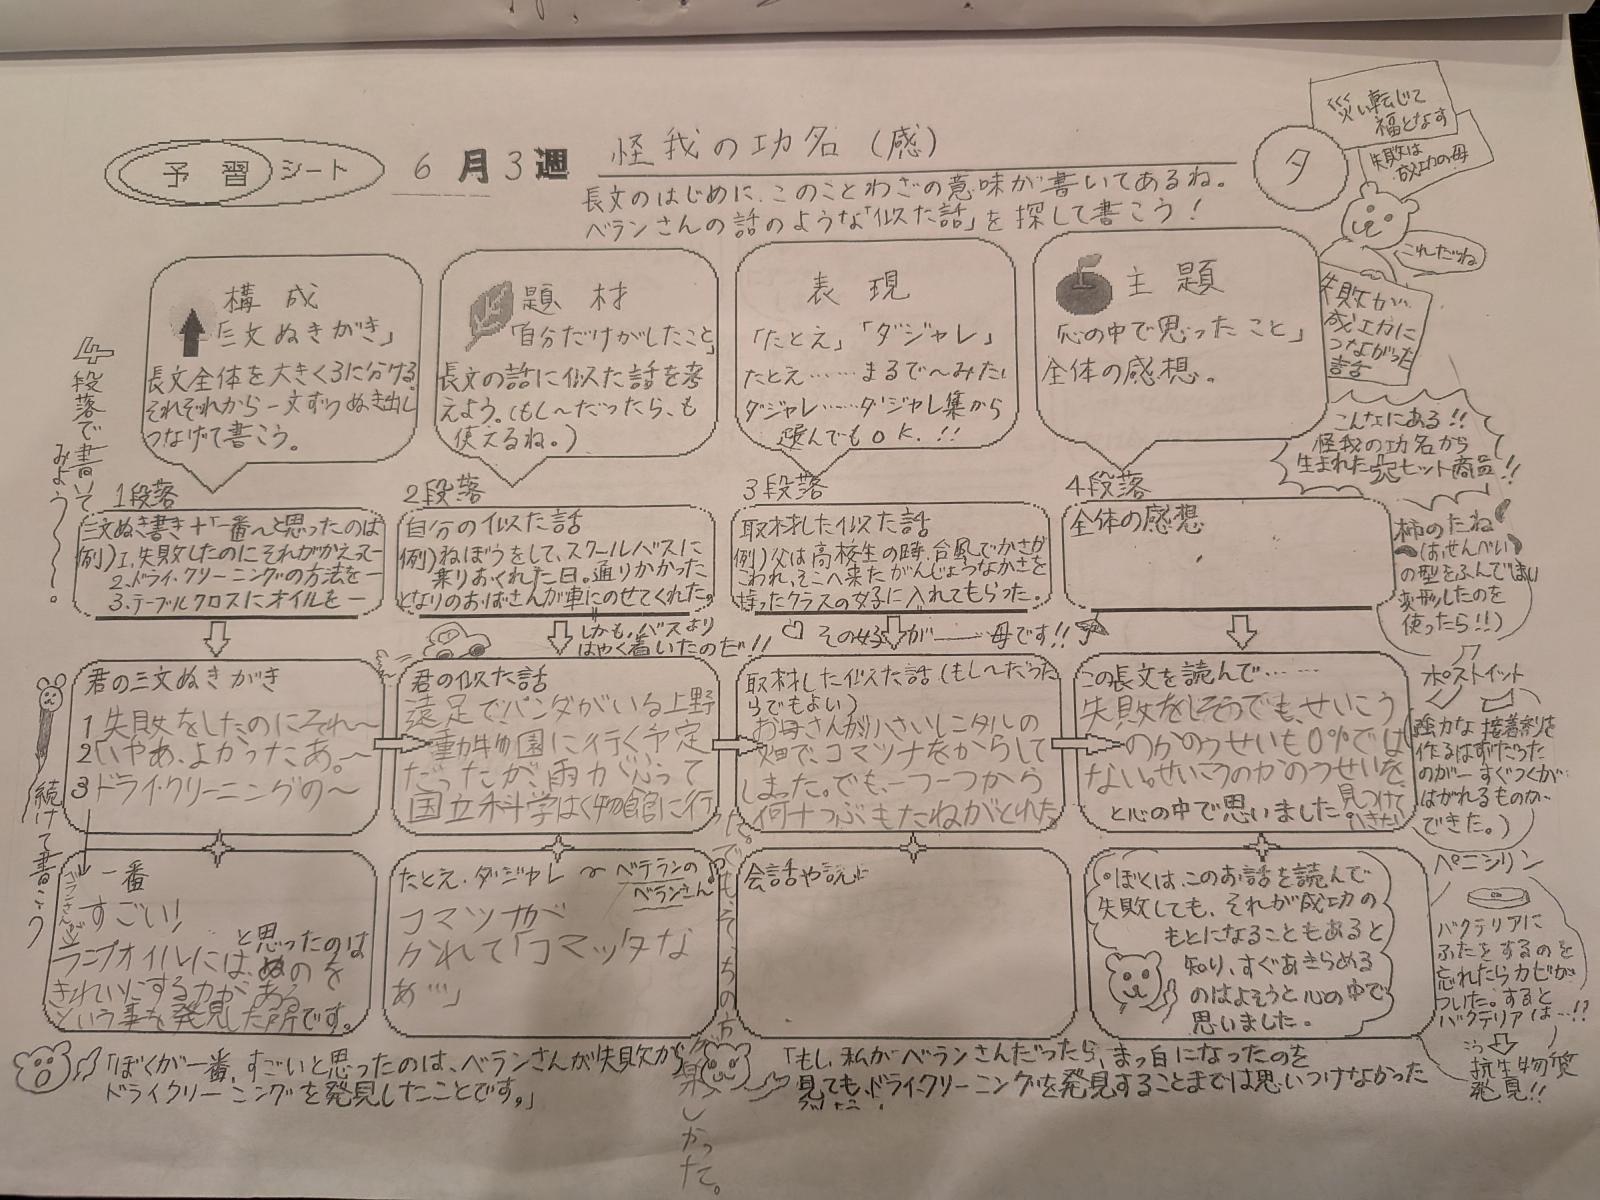 予習シート 6月3週 怪我の功名(感)
タ
長文のはじめに、このことわざの意味が書いてあるね。
ベランさんの話のような「似た話」を探して書こう!
災い転じて
福となす
失敗は
成功の母
これだね
失敗が
成功に
つながった
話
4段落で書いて
みよう〜。
構成
「三文ぬきがき」
長文全体を大きく3に分ける。
それぞれから一文ずつぬき出し
つなげて書こう。
題材
「自分だけがしたこと」
長文の話に似た話を考
えよう。(もし〜だったら、も
使えるね。)
表現
「たとえ」「ダジャレ」
たとえ……まるで〜みたい
ダジャレ……ダジャレ集から
選んでもOK.!!
主題
「心の中で思ったこと」
全体の感想。
こんなにある!!
怪我の功名から
生まれた
ヒット商品!!
1段落
三文ぬき書き+「一番〜と思ったのは
例)1.失敗したのにそれがかえって一
2.ドライ・クリーニングの方法を一
3.テーブルクロスにオイルを一
2段落
自分の似た話
例)ねぼうをして、スクールバスに
乗りおくれた日。通りかかった
となりのおばさんが車にのせてくれた。
しかも、バスより
はやく着いたのだ!!
3段落
取材した似た話
例)父は高校生の時、台風でかさが
こわれ、そこへ来たがんじょうなかさを
持ったクラスの女子に入れてもらった。
その女子が――母です!!
4段落
全体の感想
柿のたね
(は、せんべい
の型をふんで
変形したのを
使ったら!!)
君の三文ぬきがき
1 失敗をしたのにそれ〜
2「いやあ、よかったあ。〜
3 ドライ・クリーニングの〜
君の似た話
遠足でパンダがいる上野
動物園に行く予定
だったが、雨がふって
国立科学はく物館に行
った。でも、そっちの方が楽しかった。
取材した似た話(もし〜だった
らでもよい)
お母さんが小さいレンタルの
畑で、コマツナをからして
しまった。でも、一つ一つから
何十つぶもたねがとれた。
この長文を読んで……
失敗をしそうでも、せいこう
のかのうせいも0%では
ない。せいこうのかのうせいを
見つけて
いきたい
と心の中で思いました。
ポストイット
強力な接着剤を
作るはずだった
のが一すぐつくが
はがれるものが
できた。)
続けて書こう
一番
すごい!
と思ったのは
ベランさんが
ランプオイルには、ぬのを
きれいにする力がある
という事を発見した所です。
たとえ・ダジャレ 〜ベテランの
ベランさん
コマツナが
かれて「コマッタな
ぁ…」
会話や説に
「ぼくは、このお話を読んで
失敗しても、それが成功の
もとになることもあると
知り、すぐあきらめる
のはよそうと心の中で
思いました。
ペニシリン
バクテリアに
ふたをするのを
忘れたらカビが
ついた。すると
バクテリアは…!?
抗生物質
発見!!
「ぼくが一番、すごいと思ったのは、ベランさんが失敗から
ドライクリーニングを発見したことです。」
「もし、私がベランさんだったら、まっ白になったのを
見ても、ドライ・クリーニングを発見することまでは思いつけなかった